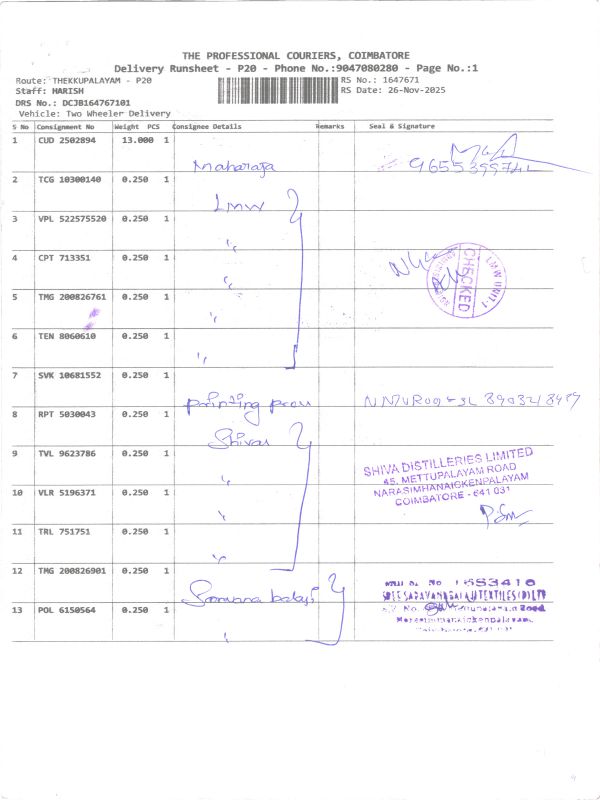 THE PROFESSIONAL COURIERS, COIMBATORE
Delivery Runsheet - P20 - Phone No.:9047080280 - Page No.:1
Route: THEKKUPALAYAM - P20
Staff: HARISH
DRS No.: DCJB164767101
Vehicle: Two Wheeler Delivery
RS No.: 1647671
RS Date: 26-Nov-2025
S No Consignment No Weight PCS Consignee Details Remarks Seal & Signature
1 CUD 2502894 13.000 1 Maharaja
2 TCG 10300140 0.250 1 LMW
3 VPL 522575520 0.250 1 "
4 CPT 713351 0.250 1 "
5 TMG 200826761 0.250 1 "
6 TEN 8060610 0.250 1 "
LMW UNIT-1
CHECKED
7 SVK 10681552 0.250 1 Printing
8 RPT 5030043 0.250 1 Shiva
9 TVL 9623786 0.250 1 "
10 VLR 5196371 0.250 1 "
11 TRL 751751 0.250 1 "
SHIVA DISTILLERIES LIMITED
45, METTUPALAYAM ROAD
NARASIMHANAICKENPALAYAM
COIMBATORE - 641 031
12 TMG 200826901 0.250 1
13 POL 6150564 0.250 1 "